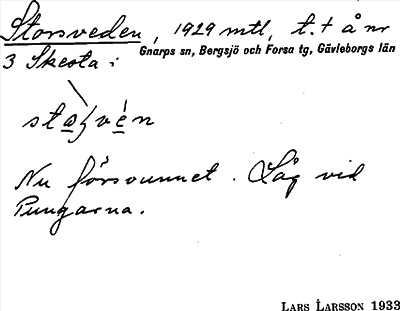 Storsveden, 1929 mtl, t. t å nr
Gnarps sn, Bergsjö och Forsa tg, Gävleborgs län
3 Skesta:
Nu försvunnet. Låg vid
Pungarna.
LARS LARSSON 1933